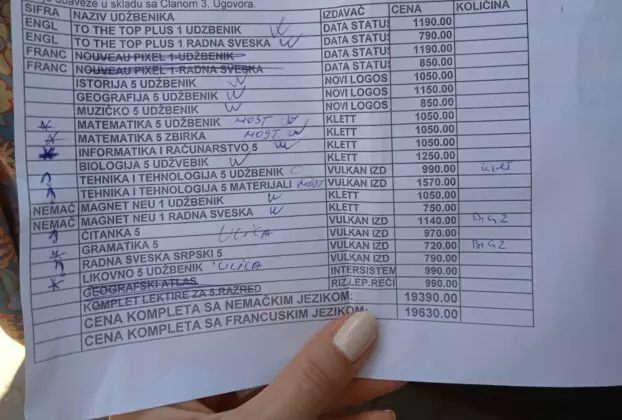 je obaveze u skladu sa Članom 3. Ugovora.
SIFRA NAZIV UDŽBENIKA IZDAVAČ CENA KOLIČINA
ENGL TO THE TOP PLUS 1 UDZBENIK DATA STATUS 1190.00
ENGL TO THE TOP PLUS 1 RADNA SVESKA DATA STATUS 790.00
FRANC NOUVEAU PIXEL 1-UDŽBENIK DATA STATUS 1190.00
FRANC NOUVEAU PIXEL 1-RADNA SVESKA DATA STATUS 850.00
ISTORIJA 5 UDŽBENIK NOVI LOGOS 1050.00
GEOGRAFIJA 5 UDŽBENIK NOVI LOGOS 1150.00
MUZIČKO 5 UDŽBENIK NOVI LOGOS 850.00
MATEMATIKA 5 UDŽBENIK MOST KLETT 1050.00
MATEMATIKA 5 ZBIRKA MOST KLETT 1050.00
INFORMATIKA I RAČUNARSTVO 5 KLETT 1050.00
BIOLOGIJA 5 UDŽVEBIK KLETT 1250.00
TEHNIKA I TEHNOLOGIJA 5 UDŽBENIK VULKAN IZD 990.00
TEHNIKA I TEHNOLOGIJA 5 MATERIJALI MOST VULKAN IZD 1570.00
NEMAČ MAGNET NEU 1 UDŽBENIK KLETT 1050.00
NEMAČ MAGNET NEU 1 RADNA SVESKA KLETT 750.00
ČITANKA 5 ULICA VULKAN IZD 1140.00 BIGZ
GRAMATIKA 5 VULKAN IZD 970.00
RADNA SVESKA SRPSKI 5 VULKAN IZD 720.00 BIGZ
LIKOVNO 5 UDŽBENIK ULICA VULKAN IZD 790.00
GEOGRAFSKI ATLAS INTERSISTEM 990.00
KOMPLET LEKTIRE ZA 5.RAZRED RIZ.LEP.REČI 990.00
CENA KOMPLETA SA NEMAČKIM JEZIKOM: 19390.00
CENA KOMPLETA SA FRANCUSKIM JEZIKOM: 19630.00